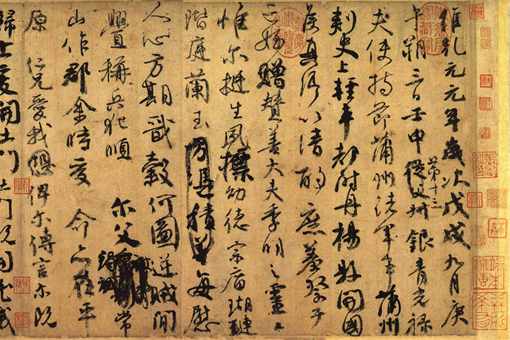 維乾元元年歲次戊戌九月庚
午朔三日壬申第十三從父叔銀青光祿
夫使持節蒲州諸軍事蒲州
刺史上輕車都尉丹楊縣開國
侯真卿以清酌庶羞祭于
亡姪贈贊善大夫季明之靈曰
惟爾挺生夙標幼德宗廟瑚璉
階庭蘭玉方憑積善每慰
人心方期戩穀何圖逆賊間
釁稱兵犯順爾父常
山作郡余時受命亦在平
原仁兄愛我俾爾傳言爾既
歸止爰開土門土門既開凶威